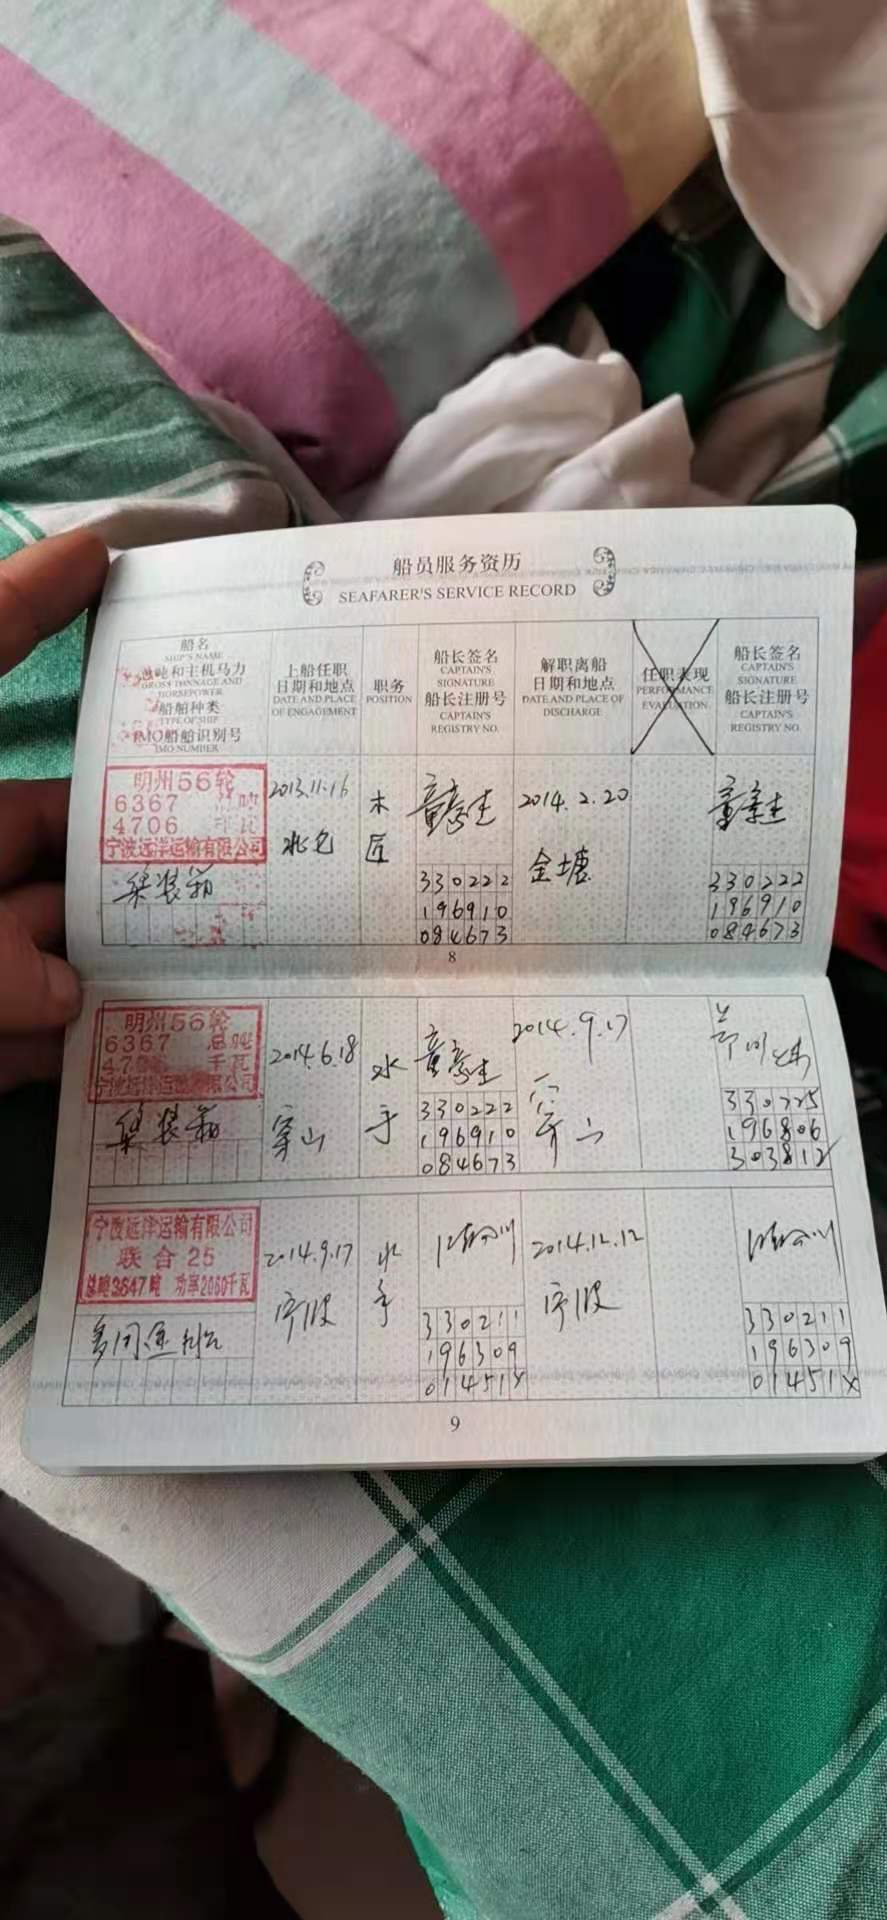 船员服务资历
SEAFARER'S SERVICE RECORD
船名
SHIP'S NAME
总吨和主机马力
GROSS TONNAGE AND
HORSEPOWER
船舶种类
TYPE OF SHIP
IMO船舶识别号
IMO NUMBER
上船任职
日期和地点
DATE AND PLACE
OF ENGAGEMENT
职务
POSITION
船长签名
CAPTAIN'S
SIGNATURE
船长注册号
CAPTAIN'S
REGISTRY NO.
解职离船
日期和地点
DATE AND PLACE OF
DISCHARGE
任职表现
PERFORMANCE
EVALUATION
船长签名
CAPTAIN'S
SIGNATURE
船长注册号
CAPTAIN'S
REGISTRY NO.
明州56轮
6367
4706 千瓦
宁波远洋运输有限公司
集装箱
2013.11.16
北仑
木
匠
330222
196910
084673
2014.2.20
金塘
330222
196910
084673
8
明州56轮
6367 总吨
千瓦
宁波远洋运输有限公司
集装箱
2014.6.18
穿山
水
手
330222
196910
084673
2014.9.17
330225
196806
303812
宁波远洋运输有限公司
联合25
总吨3647吨 功率2060千瓦
多用途
2014.9.17
宁波
水
手
330211
196309
01451X
2014.12.12
宁波
330211
196309
01451X
9